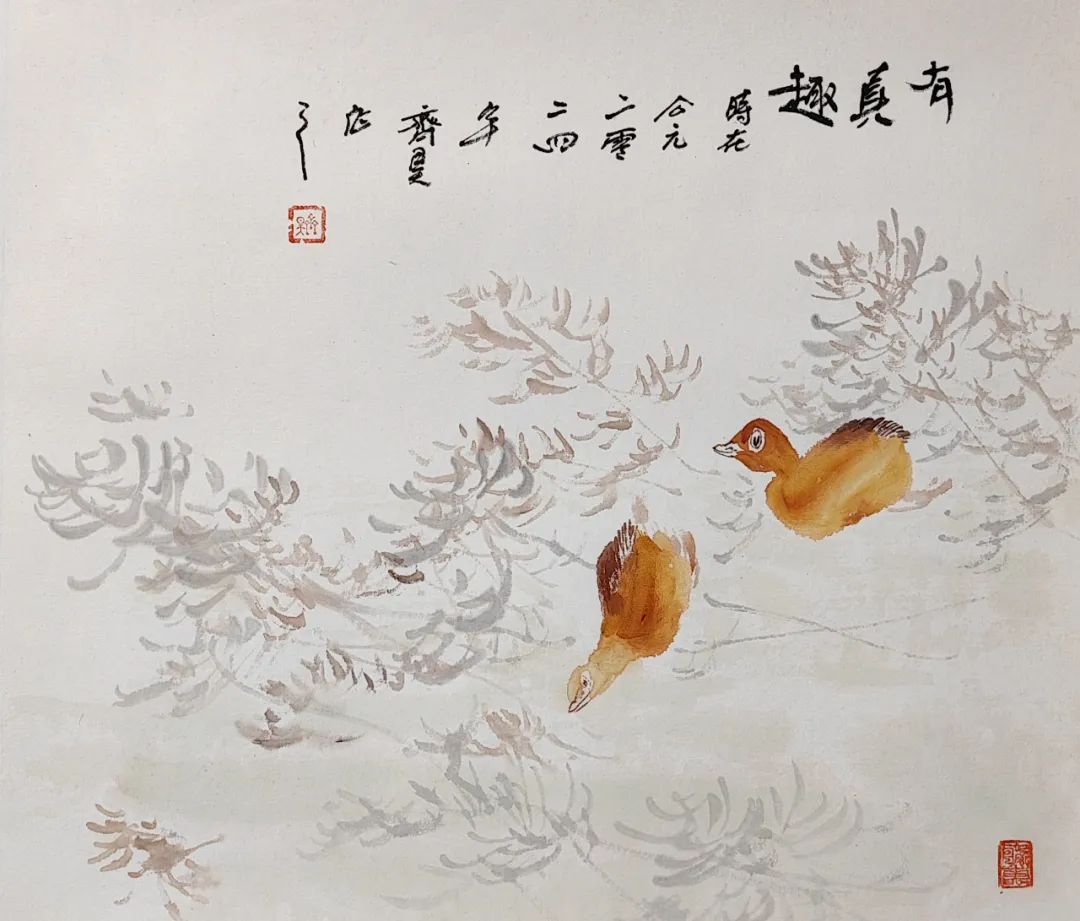 有
真
趣
時在
公元
二零
二四
年
齊